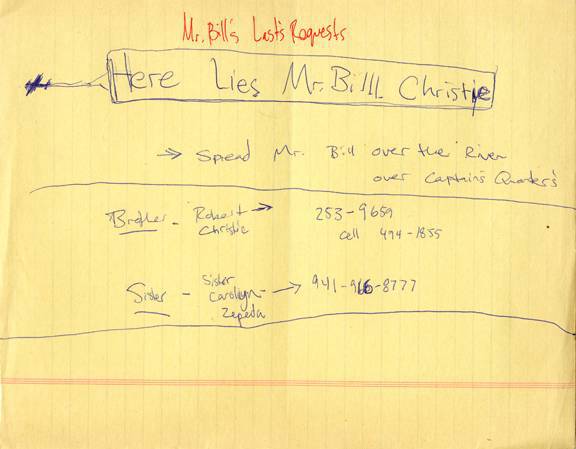 Mr. Bill's Last's Requests
Here Lies Mr. Billl Christie
→ Spread Mr. Bill over the River
over Captain's Quarter's
Brother - Robert Christie → 253-9659
cell 494-1855
Sister - Sister Carolyn Zepeda → 941-966-8777